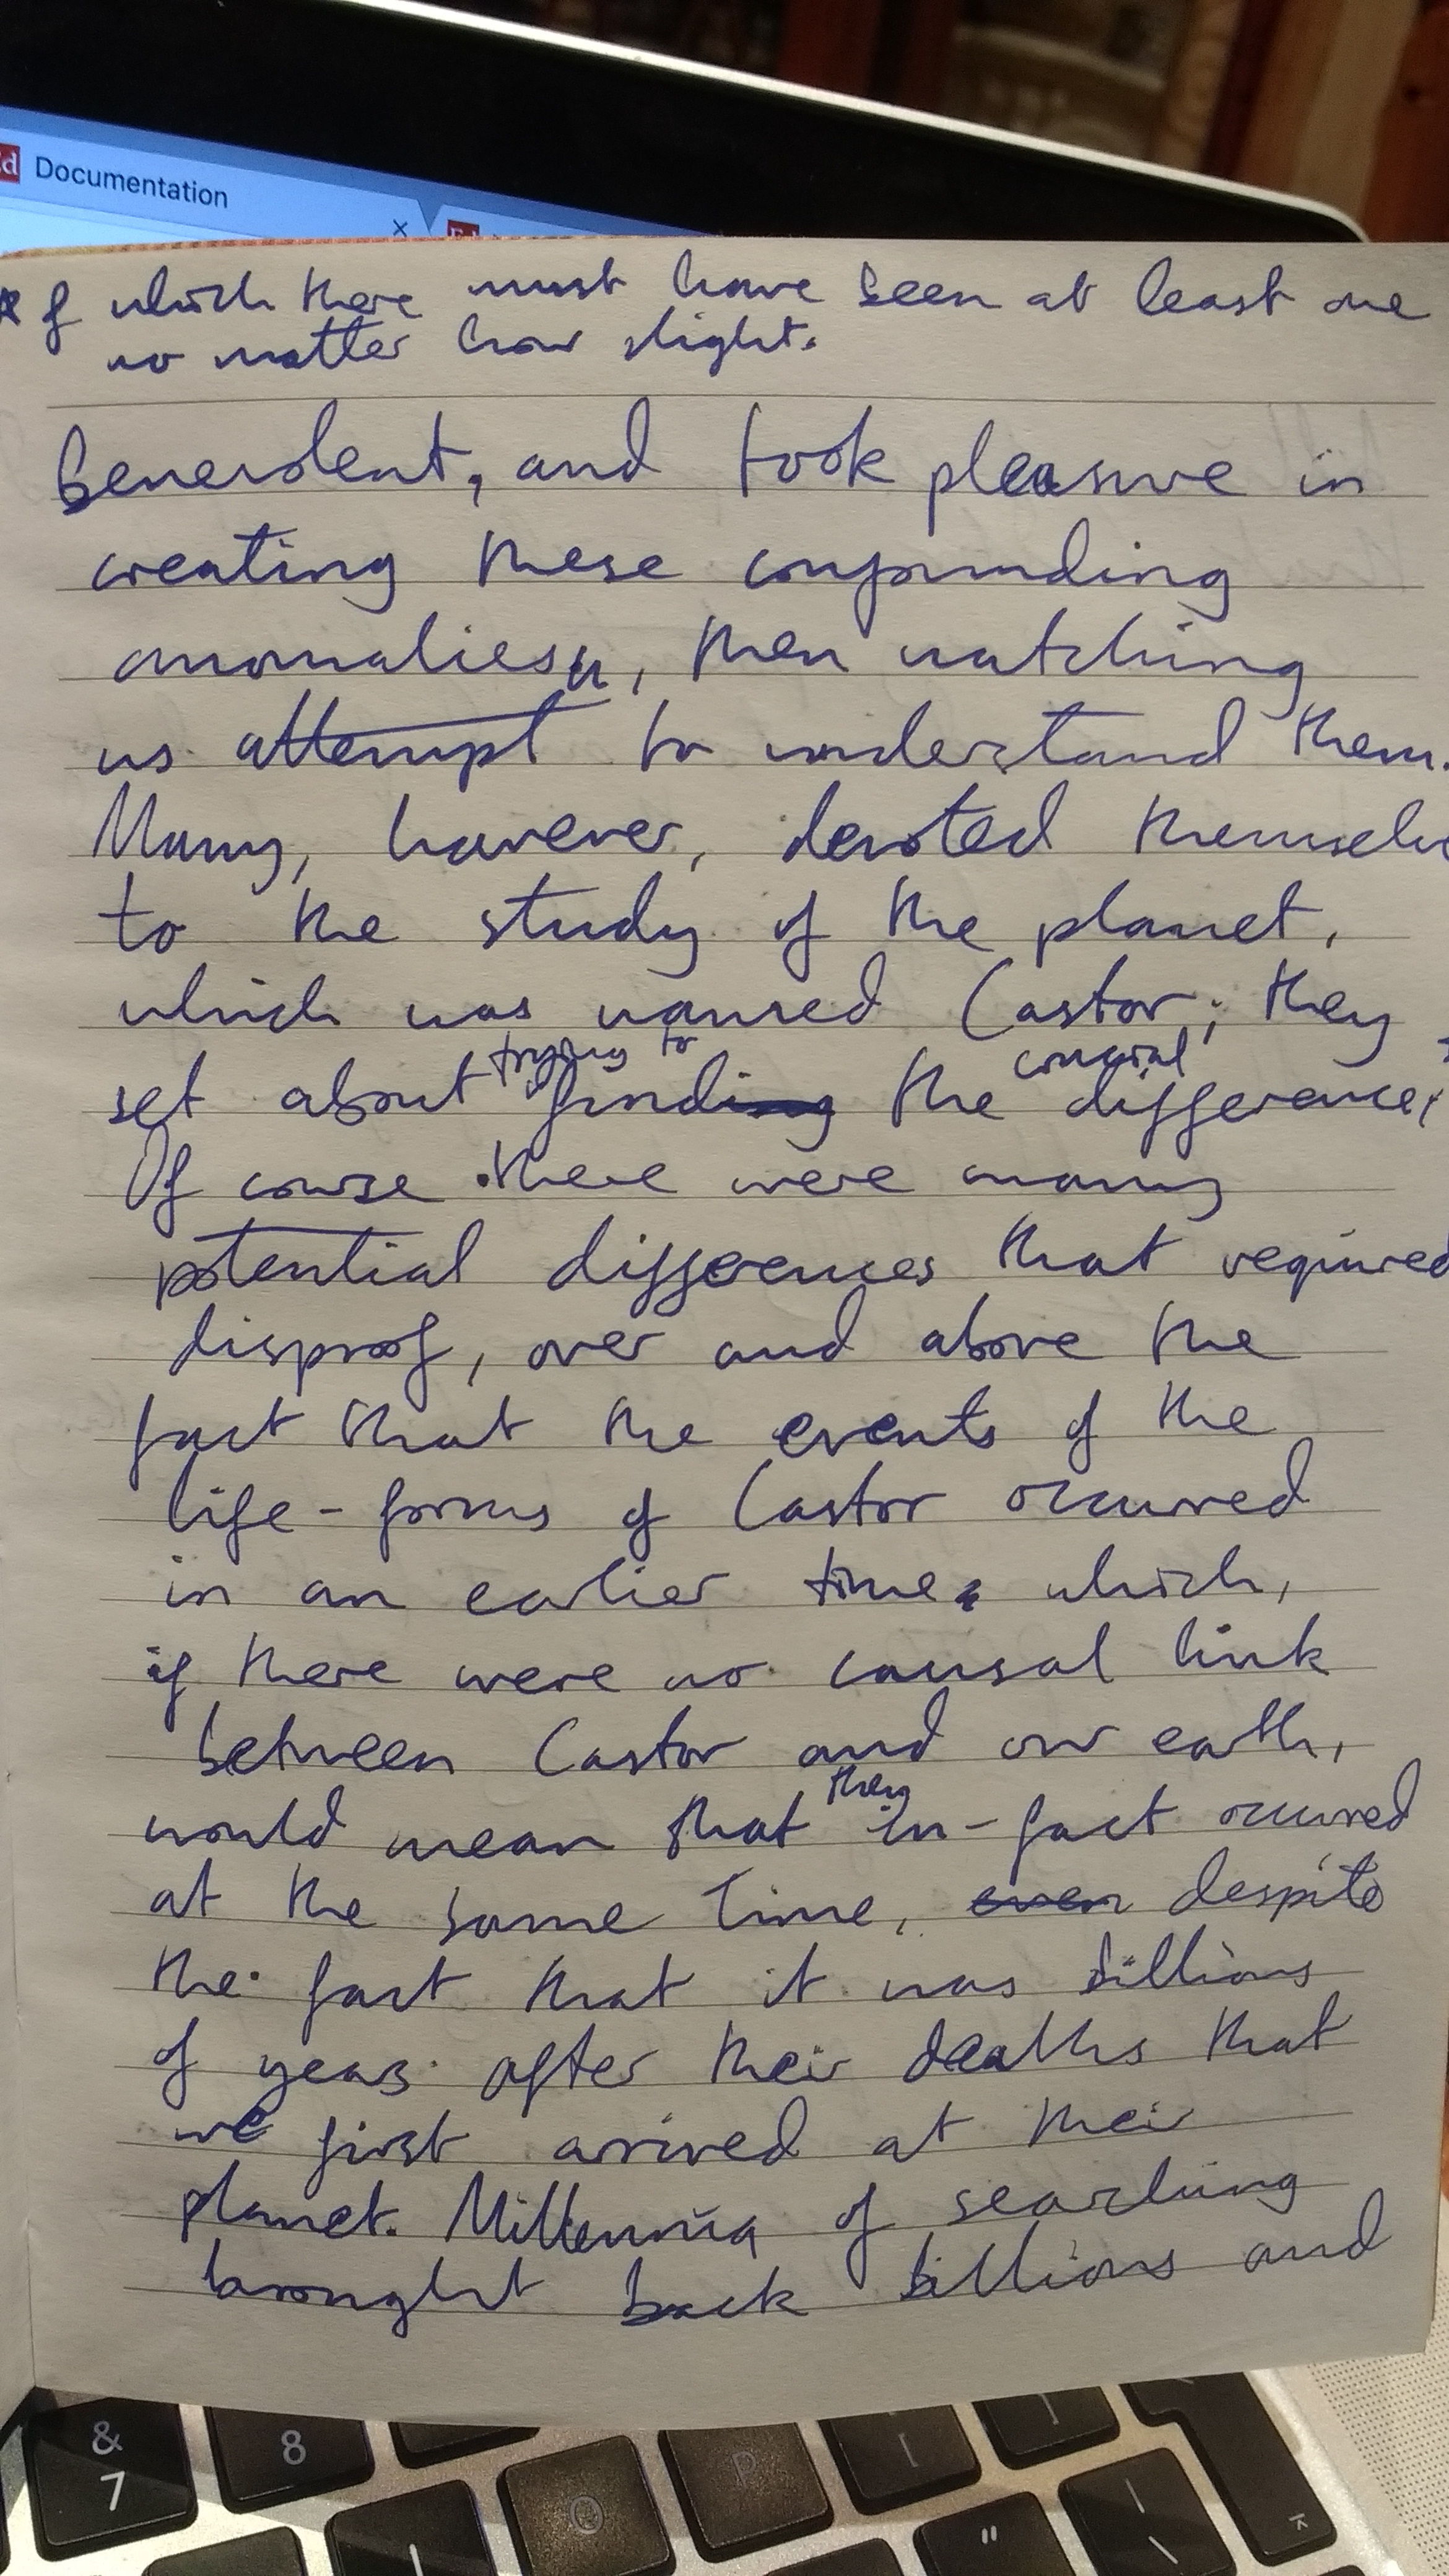 Documentation
×
* of which there must have been at least one
no matter how slight.
benevolent, and took pleasure in
creating these confounding
anomalies, then watching
us attempt to understand them.
Many, however, devoted themselv
to the study of the planet,
which was named Castor; they
trying to crucial
set about finding the difference,
Of course there were many
potential differences that required
disproof, over and above the
fact that the events of the
life-forms of Castor occurred
in an earlier time, which,
if there were no causal link
between Castor and our earth,
they
would mean that in-fact occured
at the same time, even despite
the fact that it was billions
of years after their deaths that
we first arrived at their
planet. Millennia of searching
brought back billions and
&
7
8
O
P
[
]
"
|
\